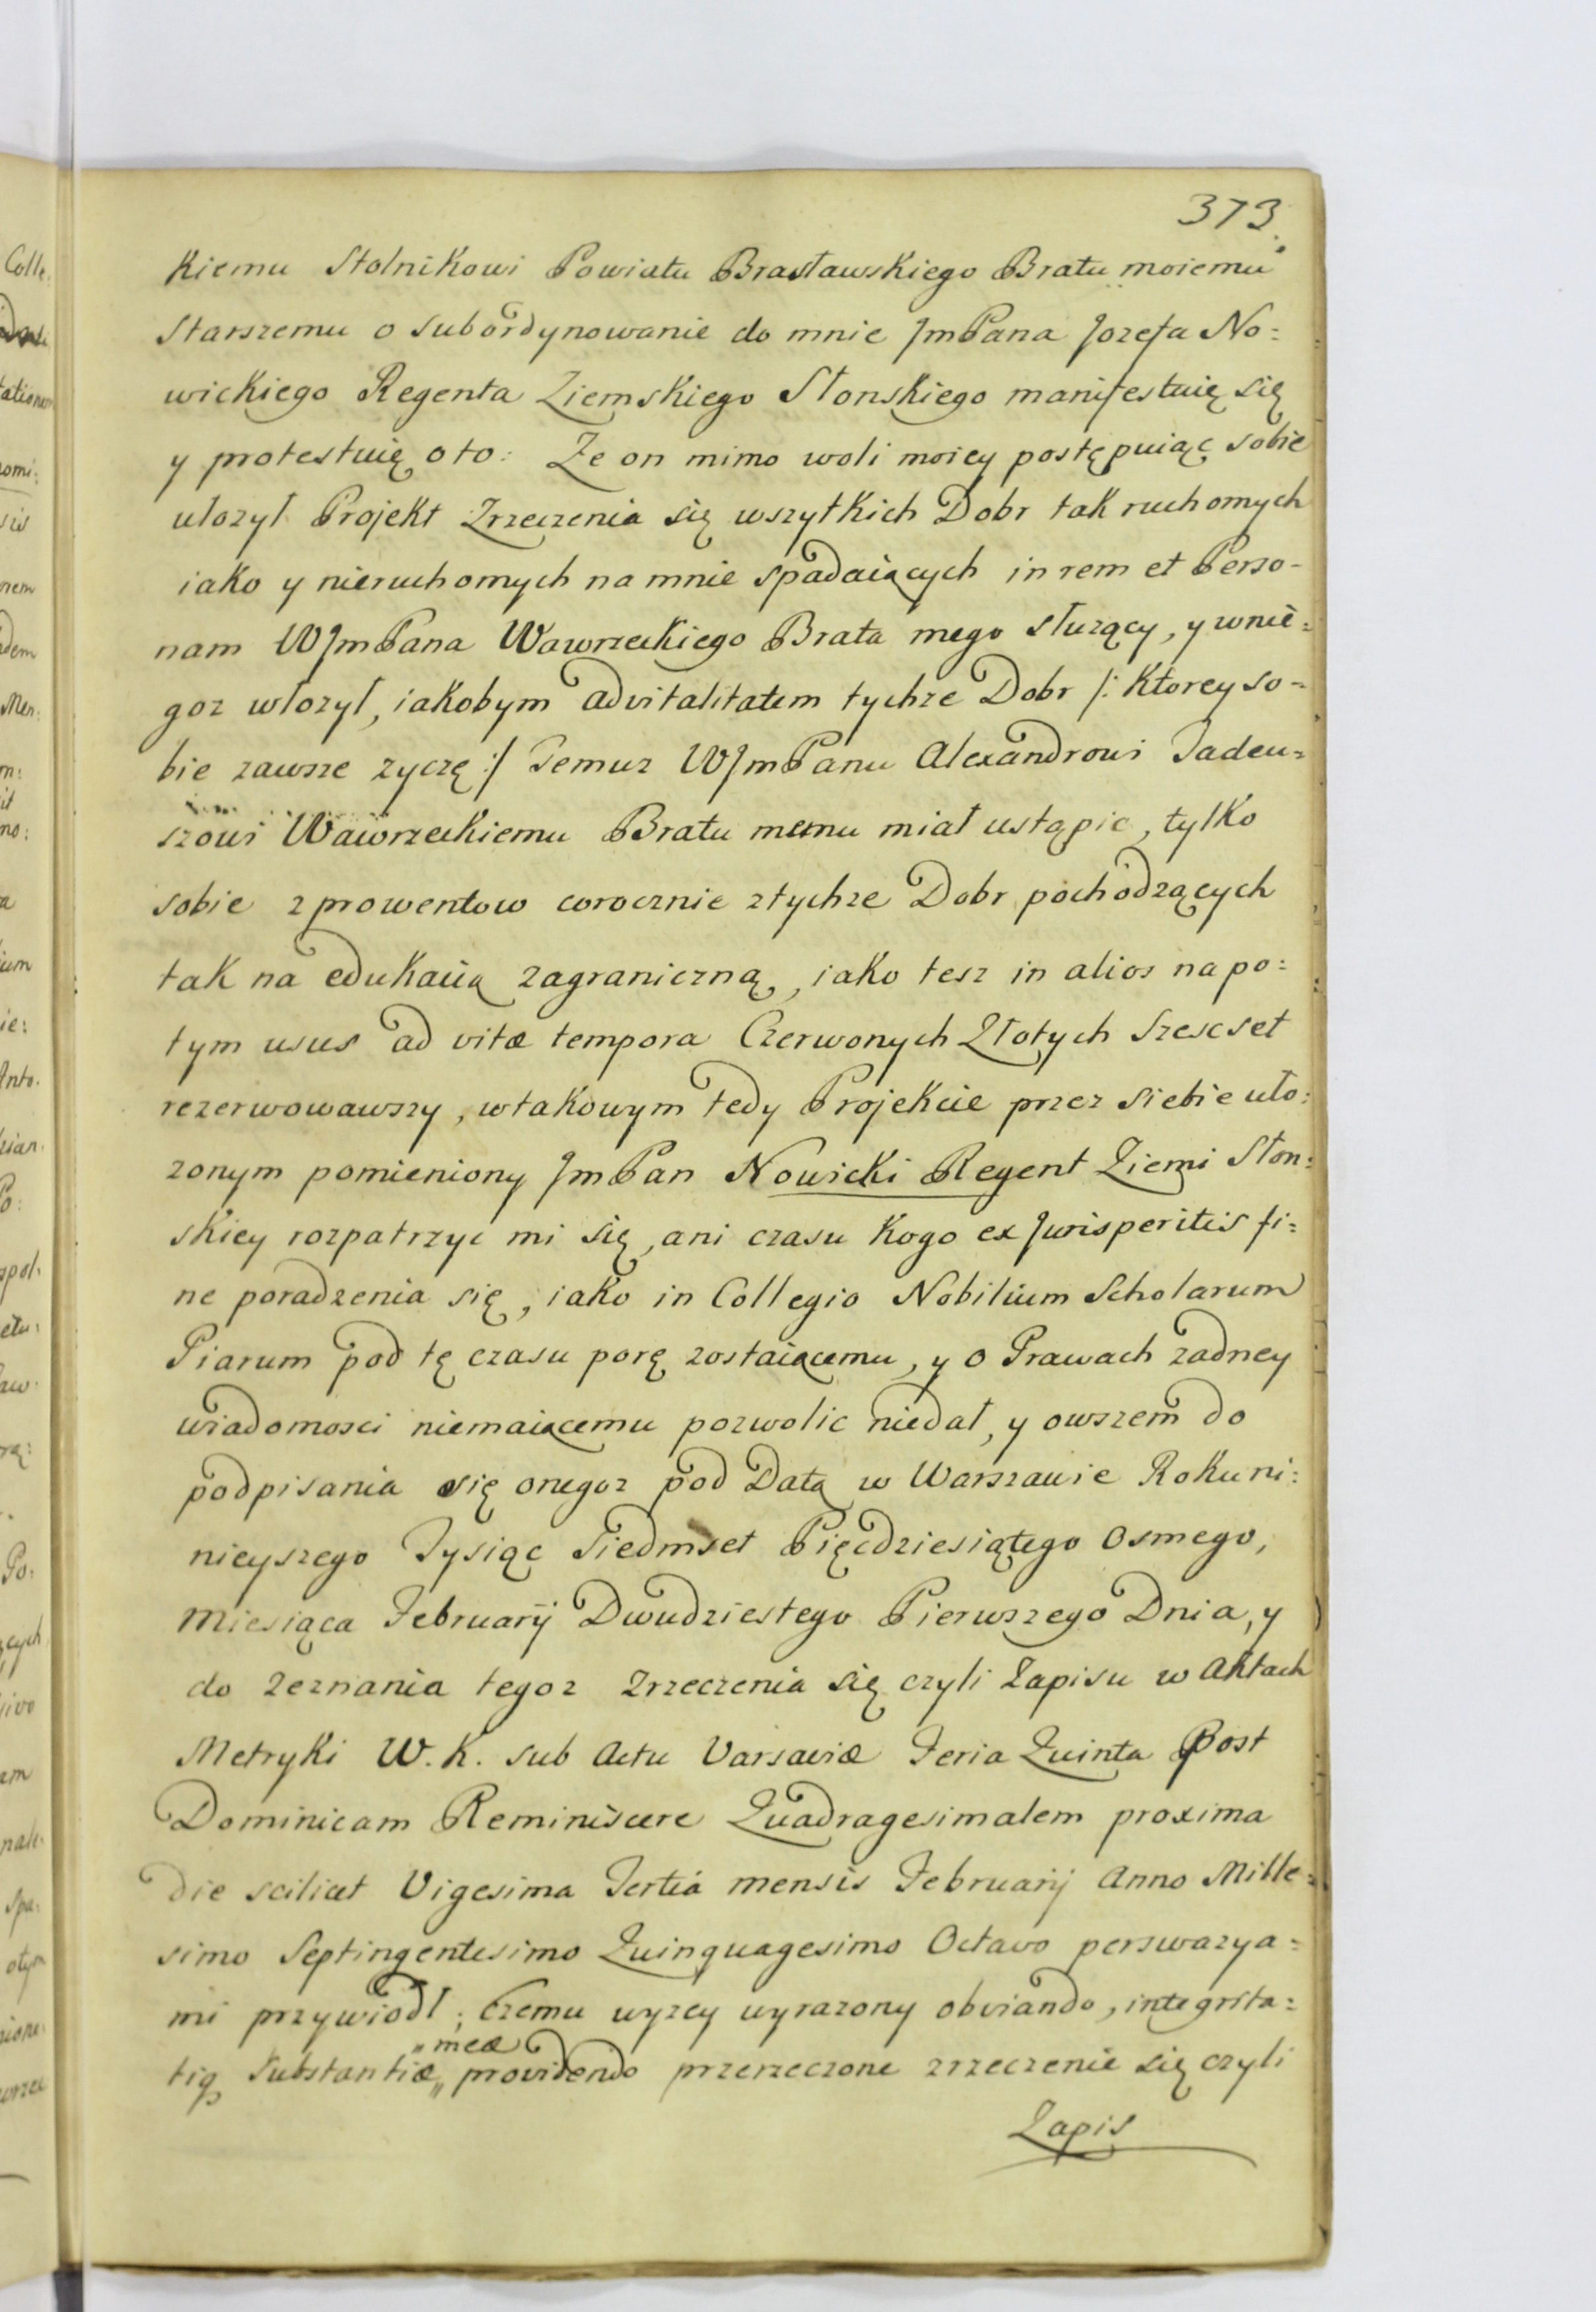 373.
kiemu Stolnikowi Powiatu Brasławskiego Bratu moiemu
Starszemu o subordynowanie do mnie JmPana Jozefa No=
wickiego Regenta Ziemskiego Słonskiego manifestuię się
y protestuię oto: Ze on mimo woli moiey postępuiąc sobie
ulozył Projekt Zrzeczenia się wszytkich Dobr tak ruchomych
iako y nieruchomych na mnie spadaiących in rem et Perso-
nam WJmPana Wawrzeckiego Brata mego słuzący, y wnie=
goz włozył, iakobym advitalitatem tychze Dobr /: Ktorey so-
bie zawsze zyczę :/ Temuz WJmPanu Alexandrowi Tadeu=
szowi Wawrzeckiemu Bratu memu miał ustąpic, tylko
sobie z prowentow corocznie ztychze Dobr pochodzących
tak na edukacią zagraniczną, iako tesz in alios na po=
tym usus ad vitæ tempora Czerwonych Złotych Szescset
rezerwowawszy, wtakowym tedy Projekcie przez siebie uło=
zonym pomieniony JmPan Nowicki Regent Ziemi Słon=
skiey rozpatrzyc mi się, ani czasu kogo ex Jurisperitis fi=
ne poradzenia się, iako in Collegio Nobilium Scholarum
Piarum pod tę czasu porę zostaiącemu, y o Prawach zadney
wiadomosci niemaiącemu pozwolic niedał, y owszem do
podpisania się onegoz pod Datą w Warszawie Roku ni=
nieyszego Tysiąc Siedmset Pięcdziesiątego Osmego,
Miesiąca Februarij Dwudziestego Pierwszego Dnia, y
do zeznania tegoz Zrzeczenia się czyli Zapisu w Aktach
Metryki W. K. sub Actu Varsaviæ Feria Quinta Post
Dominicam Reminiscere Quadragesimalem proxima
die scilicet Vigesima Tertia mensis Februarij Anno Mille=
simo Septingentesimo Quinquagesimo Octavo perswazya=
mi przywiodł; Czemu wyzey wyrazony obviando, integrita=
„meæ
tiq substantiæ„ providendo przerzeczone zrzeczenie się czyli
Zapis